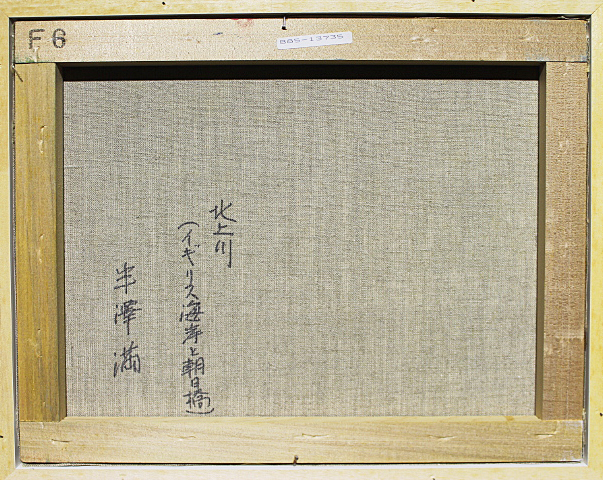 F6
885-13735
北上川
(イギリス海岸と朝日橋)
半澤満